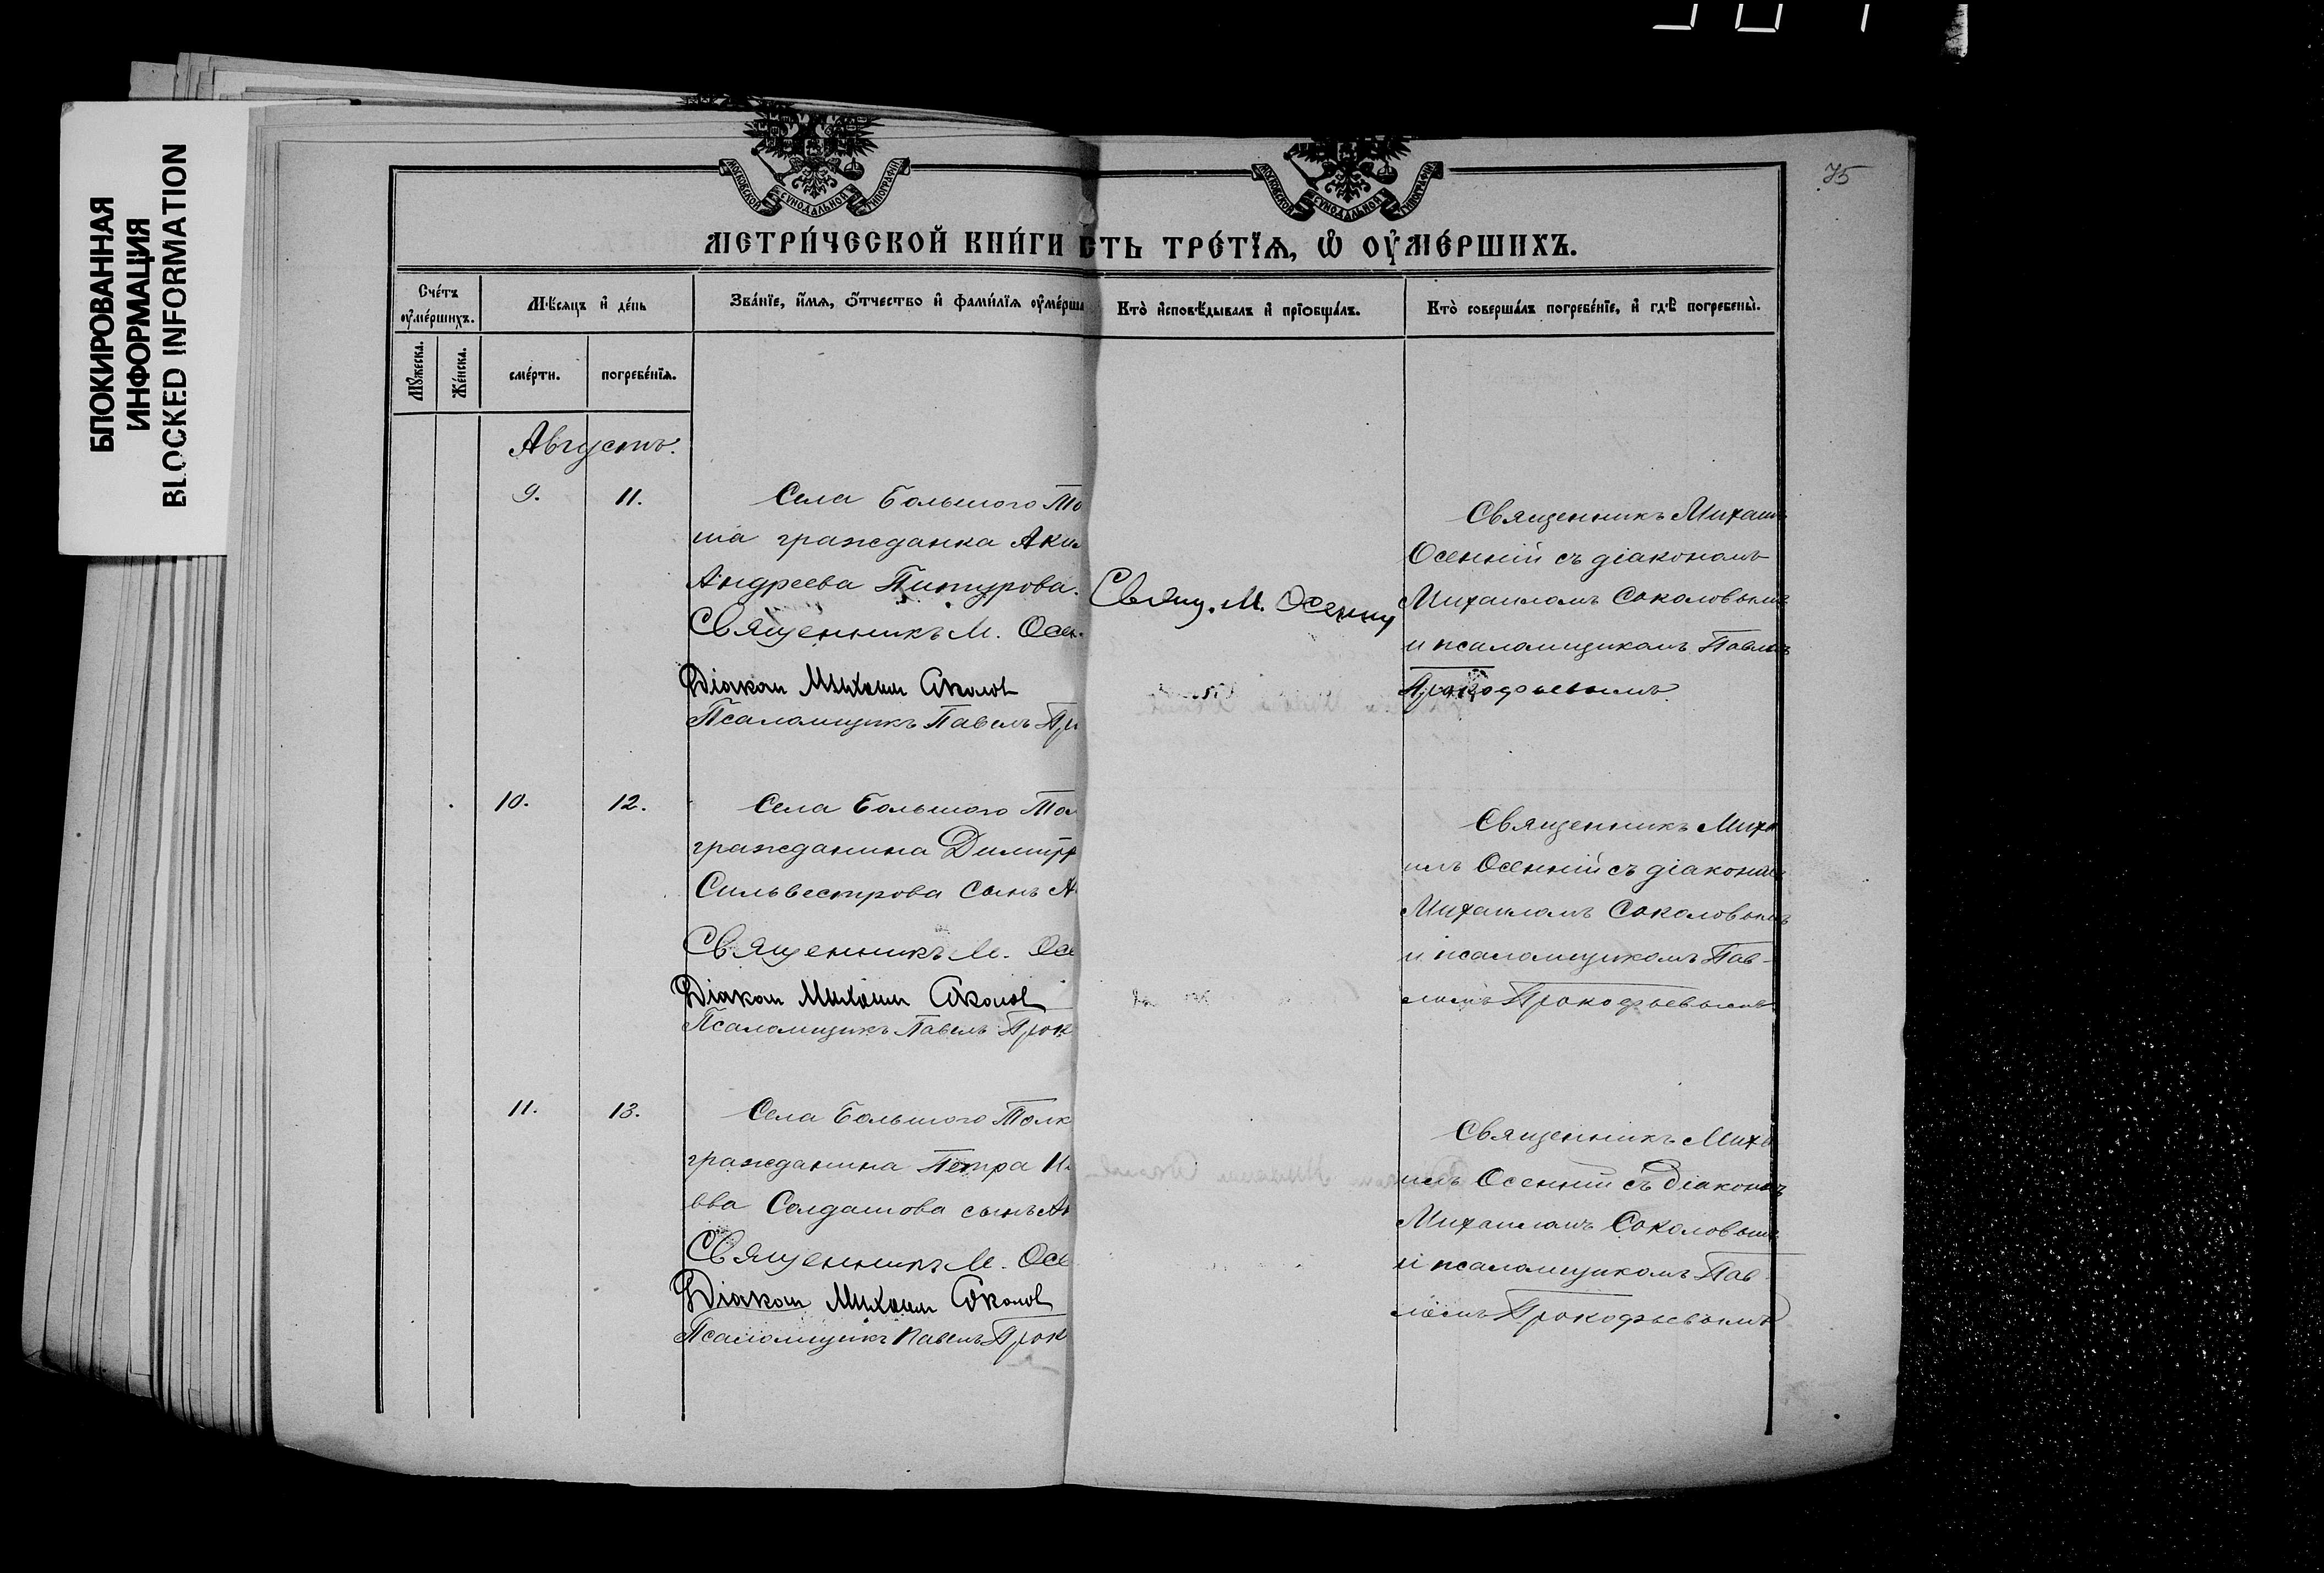 БЛОКИРОВАННАЯ
ИНФОРМАЦИЯ
BLOCKED INFORMATION
75
МОСКОВСКОЙ СУНОДАЛЬНОЙ ТИПОГРАФІИ
МОСКОВСКОЙ СУНОДАЛЬНОЙ ТИПОГРАФІИ
МЕТРИ́ЧЕСКОЙ КНИ́ГИ СТЬ ТРЕ́ТЇѦ, Ѡ҆ ОУ҆МЕ́РШИХЪ.
Сче́тъ оу҆ме́ршихъ.
Мѣ́сяцъ и҆ де́нь
Зва́нїе, и҆́мѧ, ѻ҆́тчество и҆ фами́лїѧ оу҆ме́рша
Кто̀ и҆сповѣ́дывалъ и҆ прїѡбща́лъ.
Кто̀ соверша́лъ погребе́нїе, и҆ гдѣ̀ погребены̀.
Мꙋ́жеска.
Же́нска.
сме́рти.
погребе́нїѧ.
Августъ.
9.
11.
Села Большого То
ша гражданка Аки
Андреева Питурова.
Священникъ М. Осен
Діакон Михаил Соколов
Псаломщикъ Павелъ Пр
Свящ. М. Осенний
Священникъ Михаилъ
Осенній съ діакономъ
Михаиломъ Соколовымъ
и псаломщикомъ Павломъ
Прокофьевымъ.
10.
12.
Села Большого Тол
гражданина Димитр
Сильвестрова сынъ А
Священникъ М. Осе
Діакон Михаил Соколов
Псаломщикъ Павелъ Прок
Священникъ Миха
илъ Осенній съ діакономъ
Михаиломъ Соколовымъ
и псаломщикомъ Пав-
ломъ Прокофьевымъ
11.
13.
Села Большого Толк
гражданина Петра И
ова Солдатова сынъ Ан
Священникъ М. Осе
Діакон Михаил Соколов
Псаломщикъ Павелъ Прок
Священникъ Миха
илъ Осенній съ Діакономъ
Михаиломъ Соколовымъ
и псаломщикомъ Пав-
ломъ Прокофьевымъ